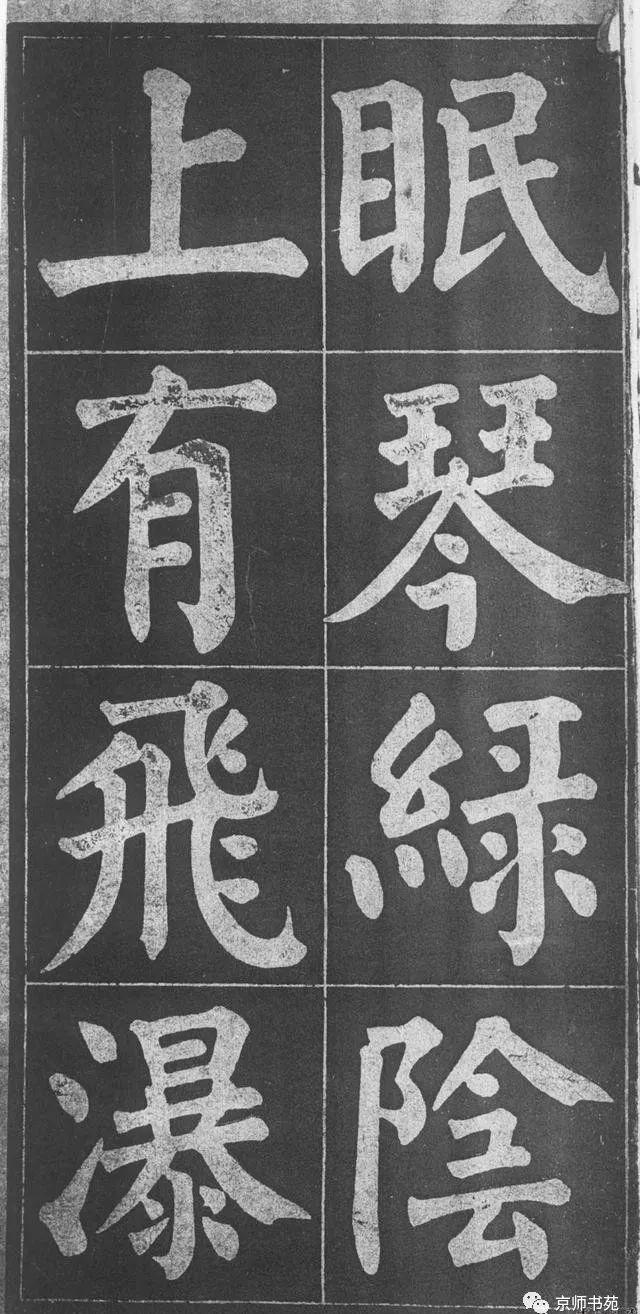 眠琴綠陰
上有飛瀑
京师书苑